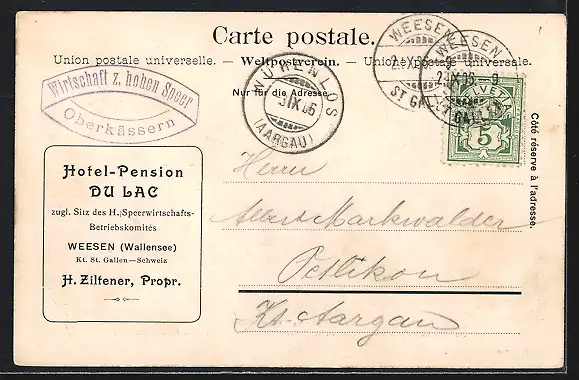 Carte postale.
Union postale universelle. — Weltpostverein. — Union postale universale.
Nur für die Adresse
Côté réservé à l'adresse.
Wirtschaft z. hohen Speer
Oberkässern
WÜRENLOS
3.IX.05
(AARGAU)
WEESEN
2.IX.05
ST GALLEN
WEESEN
2.IX.05.-9
HELVETIA
5
Hotel-Pension
DU LAC
zugl. Sitz des H. Speerwirtschafts-
Betriebskomités
WEESEN (Wallensee)
Kt. St. Gallen—Schweiz
H. Ziltener, Propr.
Herrn
Albert Markwalder
Oetlikon
Kt. Aargau